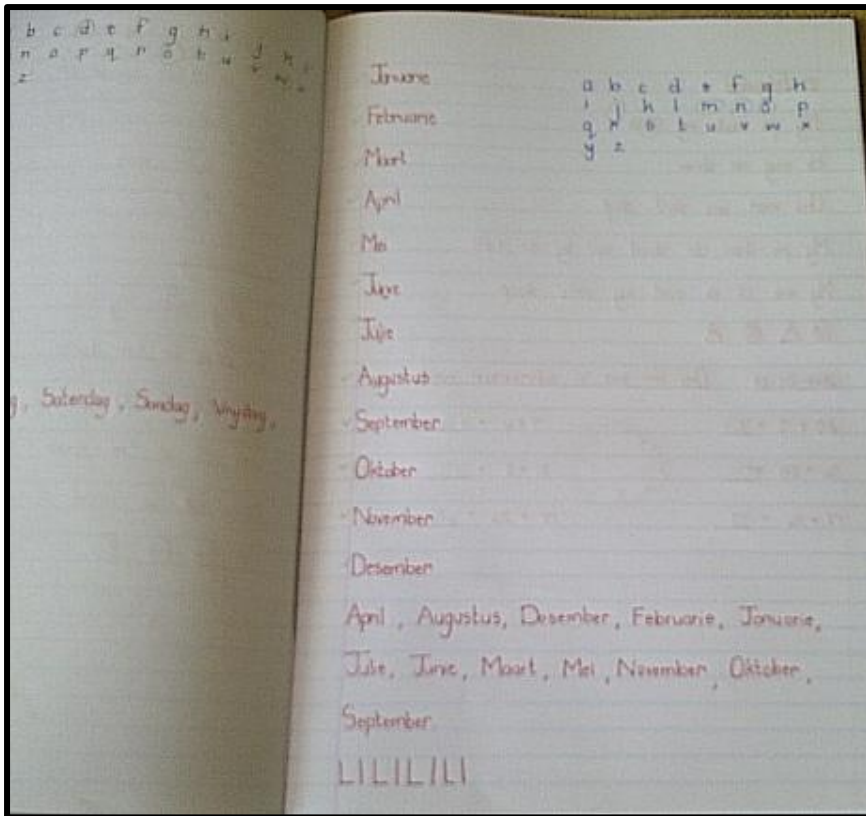 b c d e f g h i
n o p q r s t u v w x
z
Saterdag, Sondag, Vrydag,
Januarie
Februarie
Maart
April
Mei
Junie
Julie
Augustus
September
Oktober
November
Desember
a b c d e f g h
i j k l m n o p
q r s t u v w x
y z
April, Augustus, Desember, Februarie, Januarie,
Julie, Junie, Maart, Mei, November, Oktober,
September